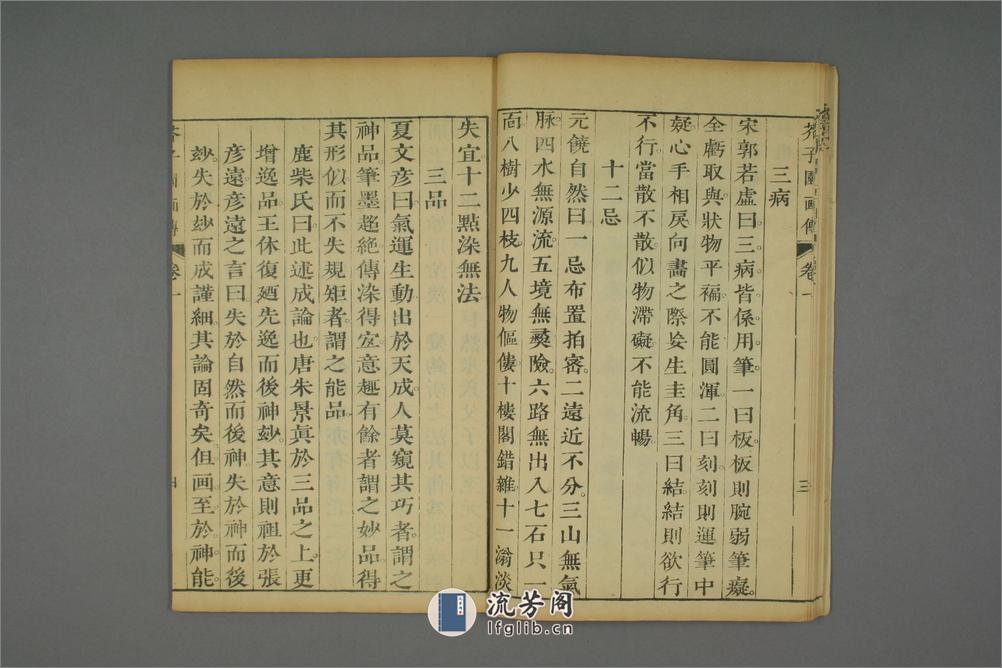 芥子園畫傳 卷一 三
三病
宋郭若虛曰三病皆係用筆一曰板板則腕弱筆癡
全虧取與狀物平褊不能圓渾二曰刻刻則運筆中
疑心手相戾向畫之際妄生圭角三曰結結則欲行
不行當散不散似物滯礙不能流暢
十二忌
元饒自然曰一忌布置拍密二遠近不分三山無氣
脉四水無源流五境無夷險六路無出入七石只一
面八樹少四枝九人物傴僂十樓閣錯雜十一滃淡
失宜十二點染無法
三品
夏文彥曰氣運生動出於天成人莫窺其巧者謂之
神品筆墨超絕傳染得宐意趣有餘者謂之妙品得
其形似而不失規矩者謂之能品
鹿柴氏曰此述成論也唐朱景眞於三品之上更
增逸品王休復廼先逸而後神玅其意則祖於張
彥遠彥遠之言曰失於自然而後神失於神而後
玅失於玅而成謹細其論固奇矣但画至於神能
卷一
流芳阁
lfglib.cn